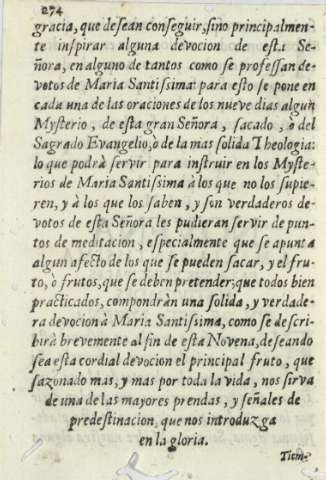 274
gracia, que desean conseguir, sino principalmen-
te inspirar alguna devocion de esta Se-
ñora, en alguno de tantos como se professan de-
votos de Maria Santissima: para esto se pone en
cada una de las oraciones de los nueve dias algun
Mysterio, de esta gran Señora, sacado, ò del
Sagrado Evangelio, ò de la mas solida Theologia:
lo que podrà servir para instruir en los Myste-
rios de Maria Santissima à los que no los supie-
ren, y à los que los saben, y son verdaderos de-
votos de esta Señora les pudieran servir de pun-
tos de meditacion, especialmente que se apunta
algun afecto de los que se pueden sacar, y el fru-
to, ò frutos, que se deben pretender; que todos bien
practicados, compondràn una solida, y verdade-
ra devocion à Maria Santissima, como se descri-
birà brevemente al fin de esta Novena, deseando
sea esta cordial devocion el principal fruto, que
sazonado mas, y mas por toda la vida, nos sirva
de una de las mayores prendas, y señales de
predestinacion, que nos introduzga
en la gloria.